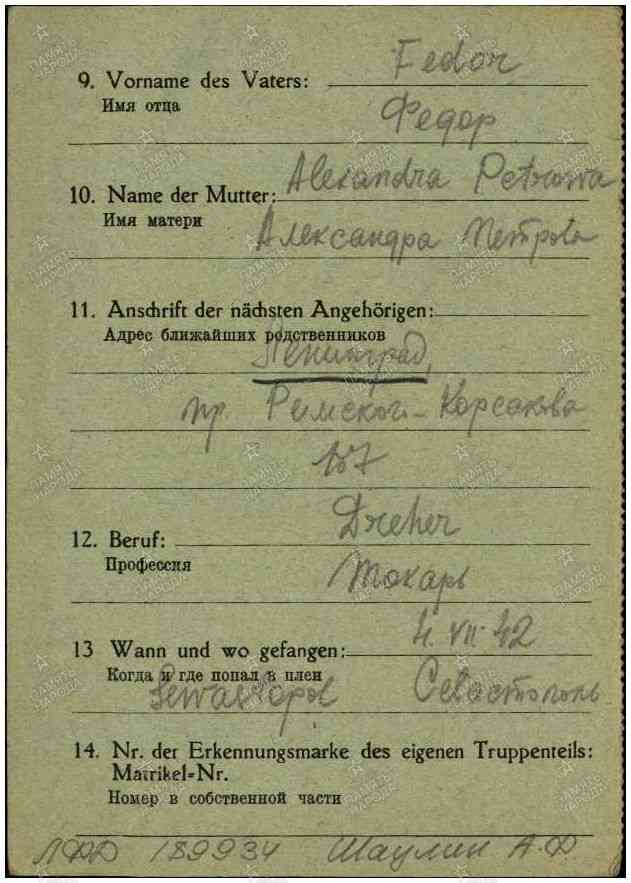 9. Vorname des Vaters: Fedor
Имя отца
Федор
10. Name der Mutter: Alexandra Petrowa
Имя матери
Александра Петрова
11. Anschrift der nächsten Angehörigen:
Адрес ближайших родственников
Ленинград,
пр. Римской-Корсакова
107
12. Beruf: Dreher
Профессия
Токарь
13 Wann und wo gefangen: 4. VII. 42
Когда и где попал в плен
Sewastopol Севастополь
14. Nr. der Erkennungsmarke des eigenen Truppenteils:
Matrikel=Nr.
Номер в собственной части
189934 Шаулин А.Ф